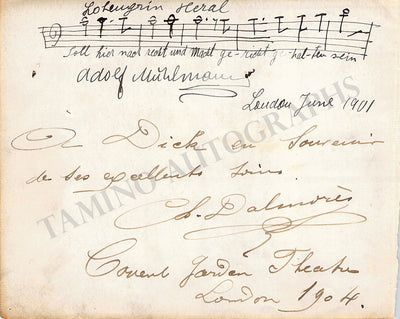 Lohengrin Heral
Soll hier nach recht und Macht ge-richt ge-hal-ten sein
Adolf Mühlmann
London June 1901
A Dick en Souvenir
de ses excellents soins.
Ch. Dalmorès
Covent Garden Theatre
London 1904.
TAMINO AUTOGRAPHS